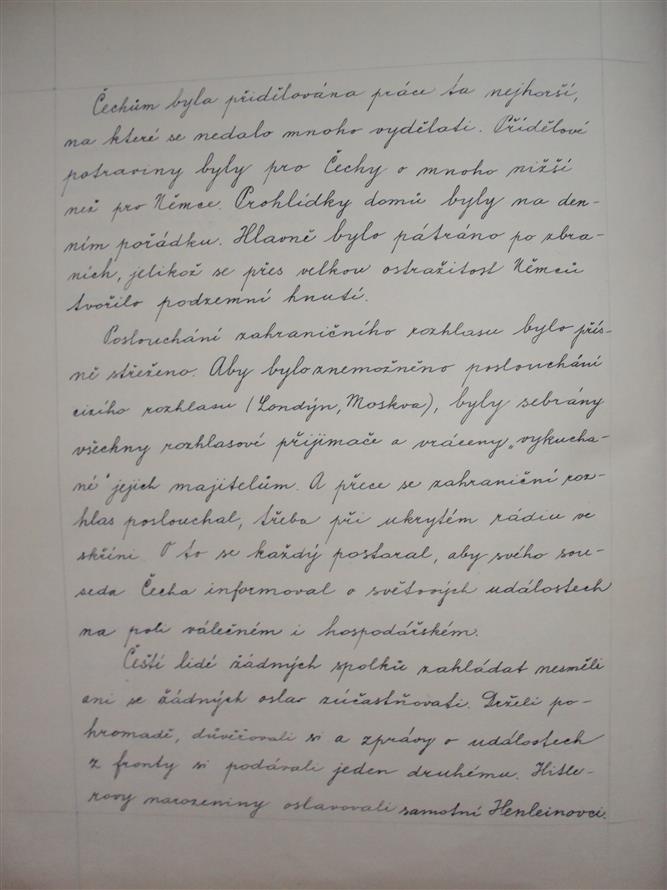 Čechům byla přidělována práce ta nejhorší,
na které se nedalo mnoho vydělati. Přídělové
potraviny byly pro Čechy o mnoho nižší
než pro Němce. Prohlídky domů byly na den-
ním pořádku. Hlavně bylo pátráno po zbra-
ních, jelikož se přes velkou ostražitost Němců
tvořilo podzemní hnutí.
Poslouchání zahraničního rozhlasu bylo přís-
ně střeženo. Aby bylo znemožněno poslouchání
cizího rozhlasu (Londýn, Moskva), byly sebrány
všechny rozhlasové přijimače a vráceny „vykucha-
né" jejich majitelům. A přece se zahraniční roz-
hlas poslouchal, třeba při ukrytém rádiu ve
skříni. O to se každý postaral, aby svého sou-
seda Čecha informoval o světových událostech
na poli válečném i hospodářském.
Čeští lidé žádných spolků zakládat nesměli
ani se žádných oslav zúčastňovati. Drželi po-
hromadě, důvěřovali si a zprávy o událostech
z fronty si podávali jeden druhému. Hitle-
rovy narozeniny oslavovali samotní Henleinovci.